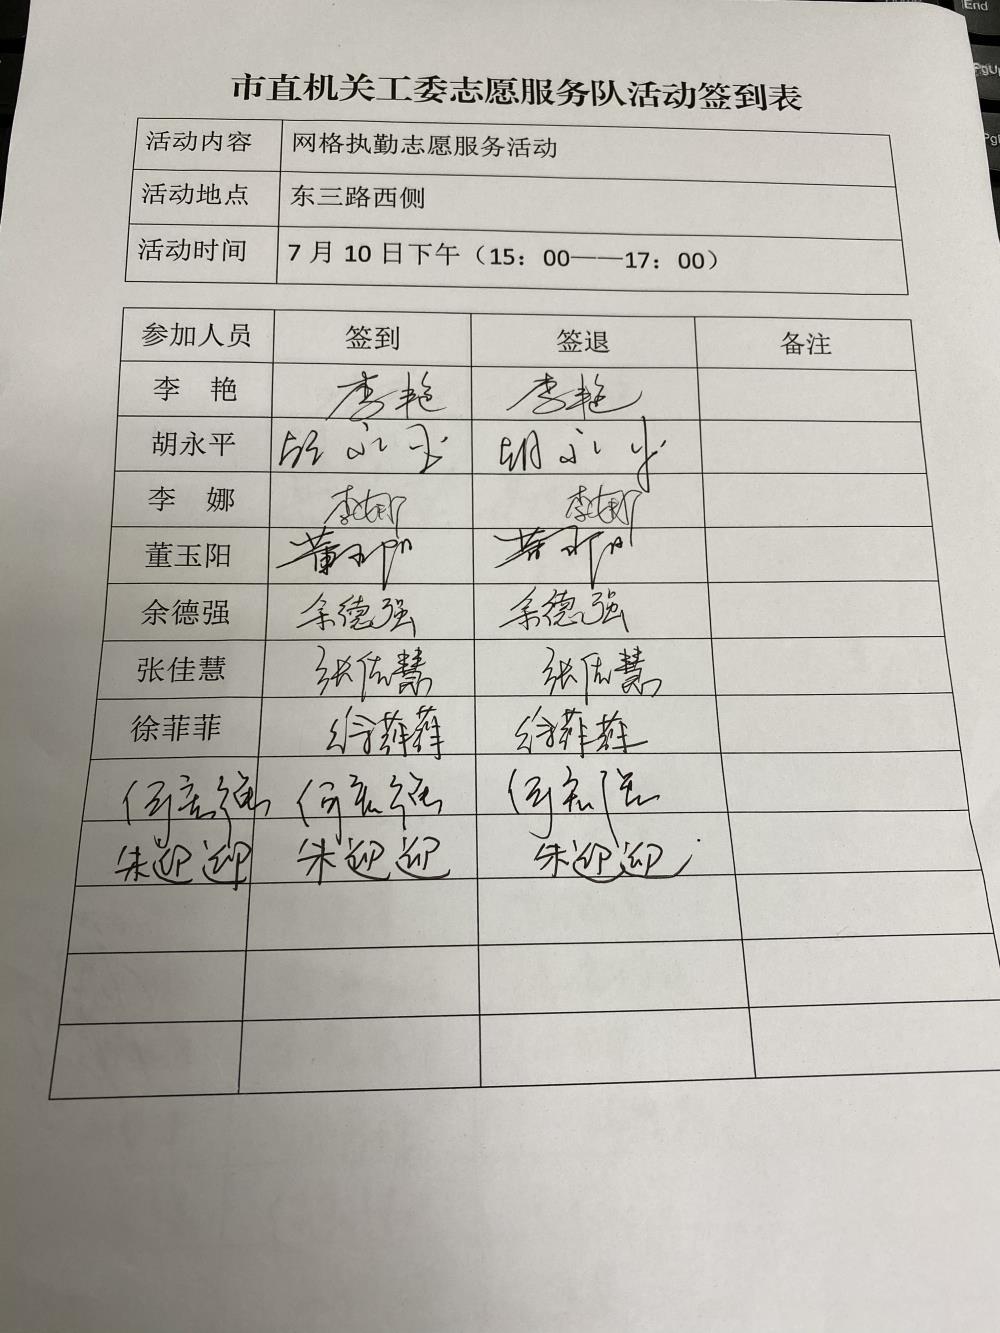 市直机关工委志愿服务队活动签到表
活动内容 网格执勤志愿服务活动
活动地点 东三路西侧
活动时间 7月10日下午（15：00——17：00）
参加人员 签到 签退 备注
李 艳 李艳 李艳
胡永平 胡永平 胡永平
李 娜 李娜 李娜
董玉阳 董玉阳 董玉阳
余德强 余德强 余德强
张佳慧 张佳慧 张佳慧
徐菲菲 徐菲菲 徐菲菲
朱迎迎 朱迎迎 朱迎迎
End
PgUp